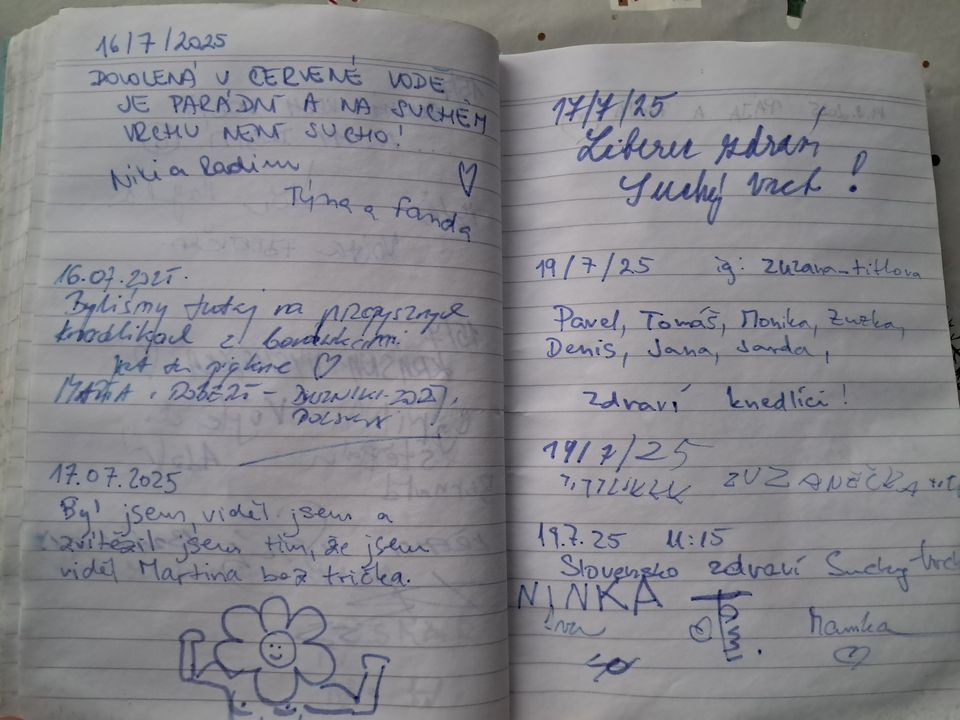 16/7/2025
DOVOLENÁ V ČERVENÉ VODĚ
JE PARÁDNÍ A NA SUCHÉM
VRCHU NENÍ SUCHO!
Niki a Radim
Týna a Fanda
16.07.2025.
Byliśmy tutaj na przepysznych
knedlikach z borůvkami.
Jest tu pięknie
MARTA i ROBERT - DUSZNIKI-ZDRÓJ,
POLSKA
17.07.2025
Byl jsem, viděl jsem a
zvítězil jsem tím, že jsem
viděl Martina bez trička.
17/7/25
Liberec zdraví
Suchý vrch!
19/7/25 ig: zuzana_titlova
Pavel, Tomáš, Monika, Zuzka,
Denis, Jana, Janda,
zdraví knedlíci!
19/7/25
ZUZANĚČKA
19.7.25 11:15
Slovensko zdraví Suchý vrch
NINKA
Mamka